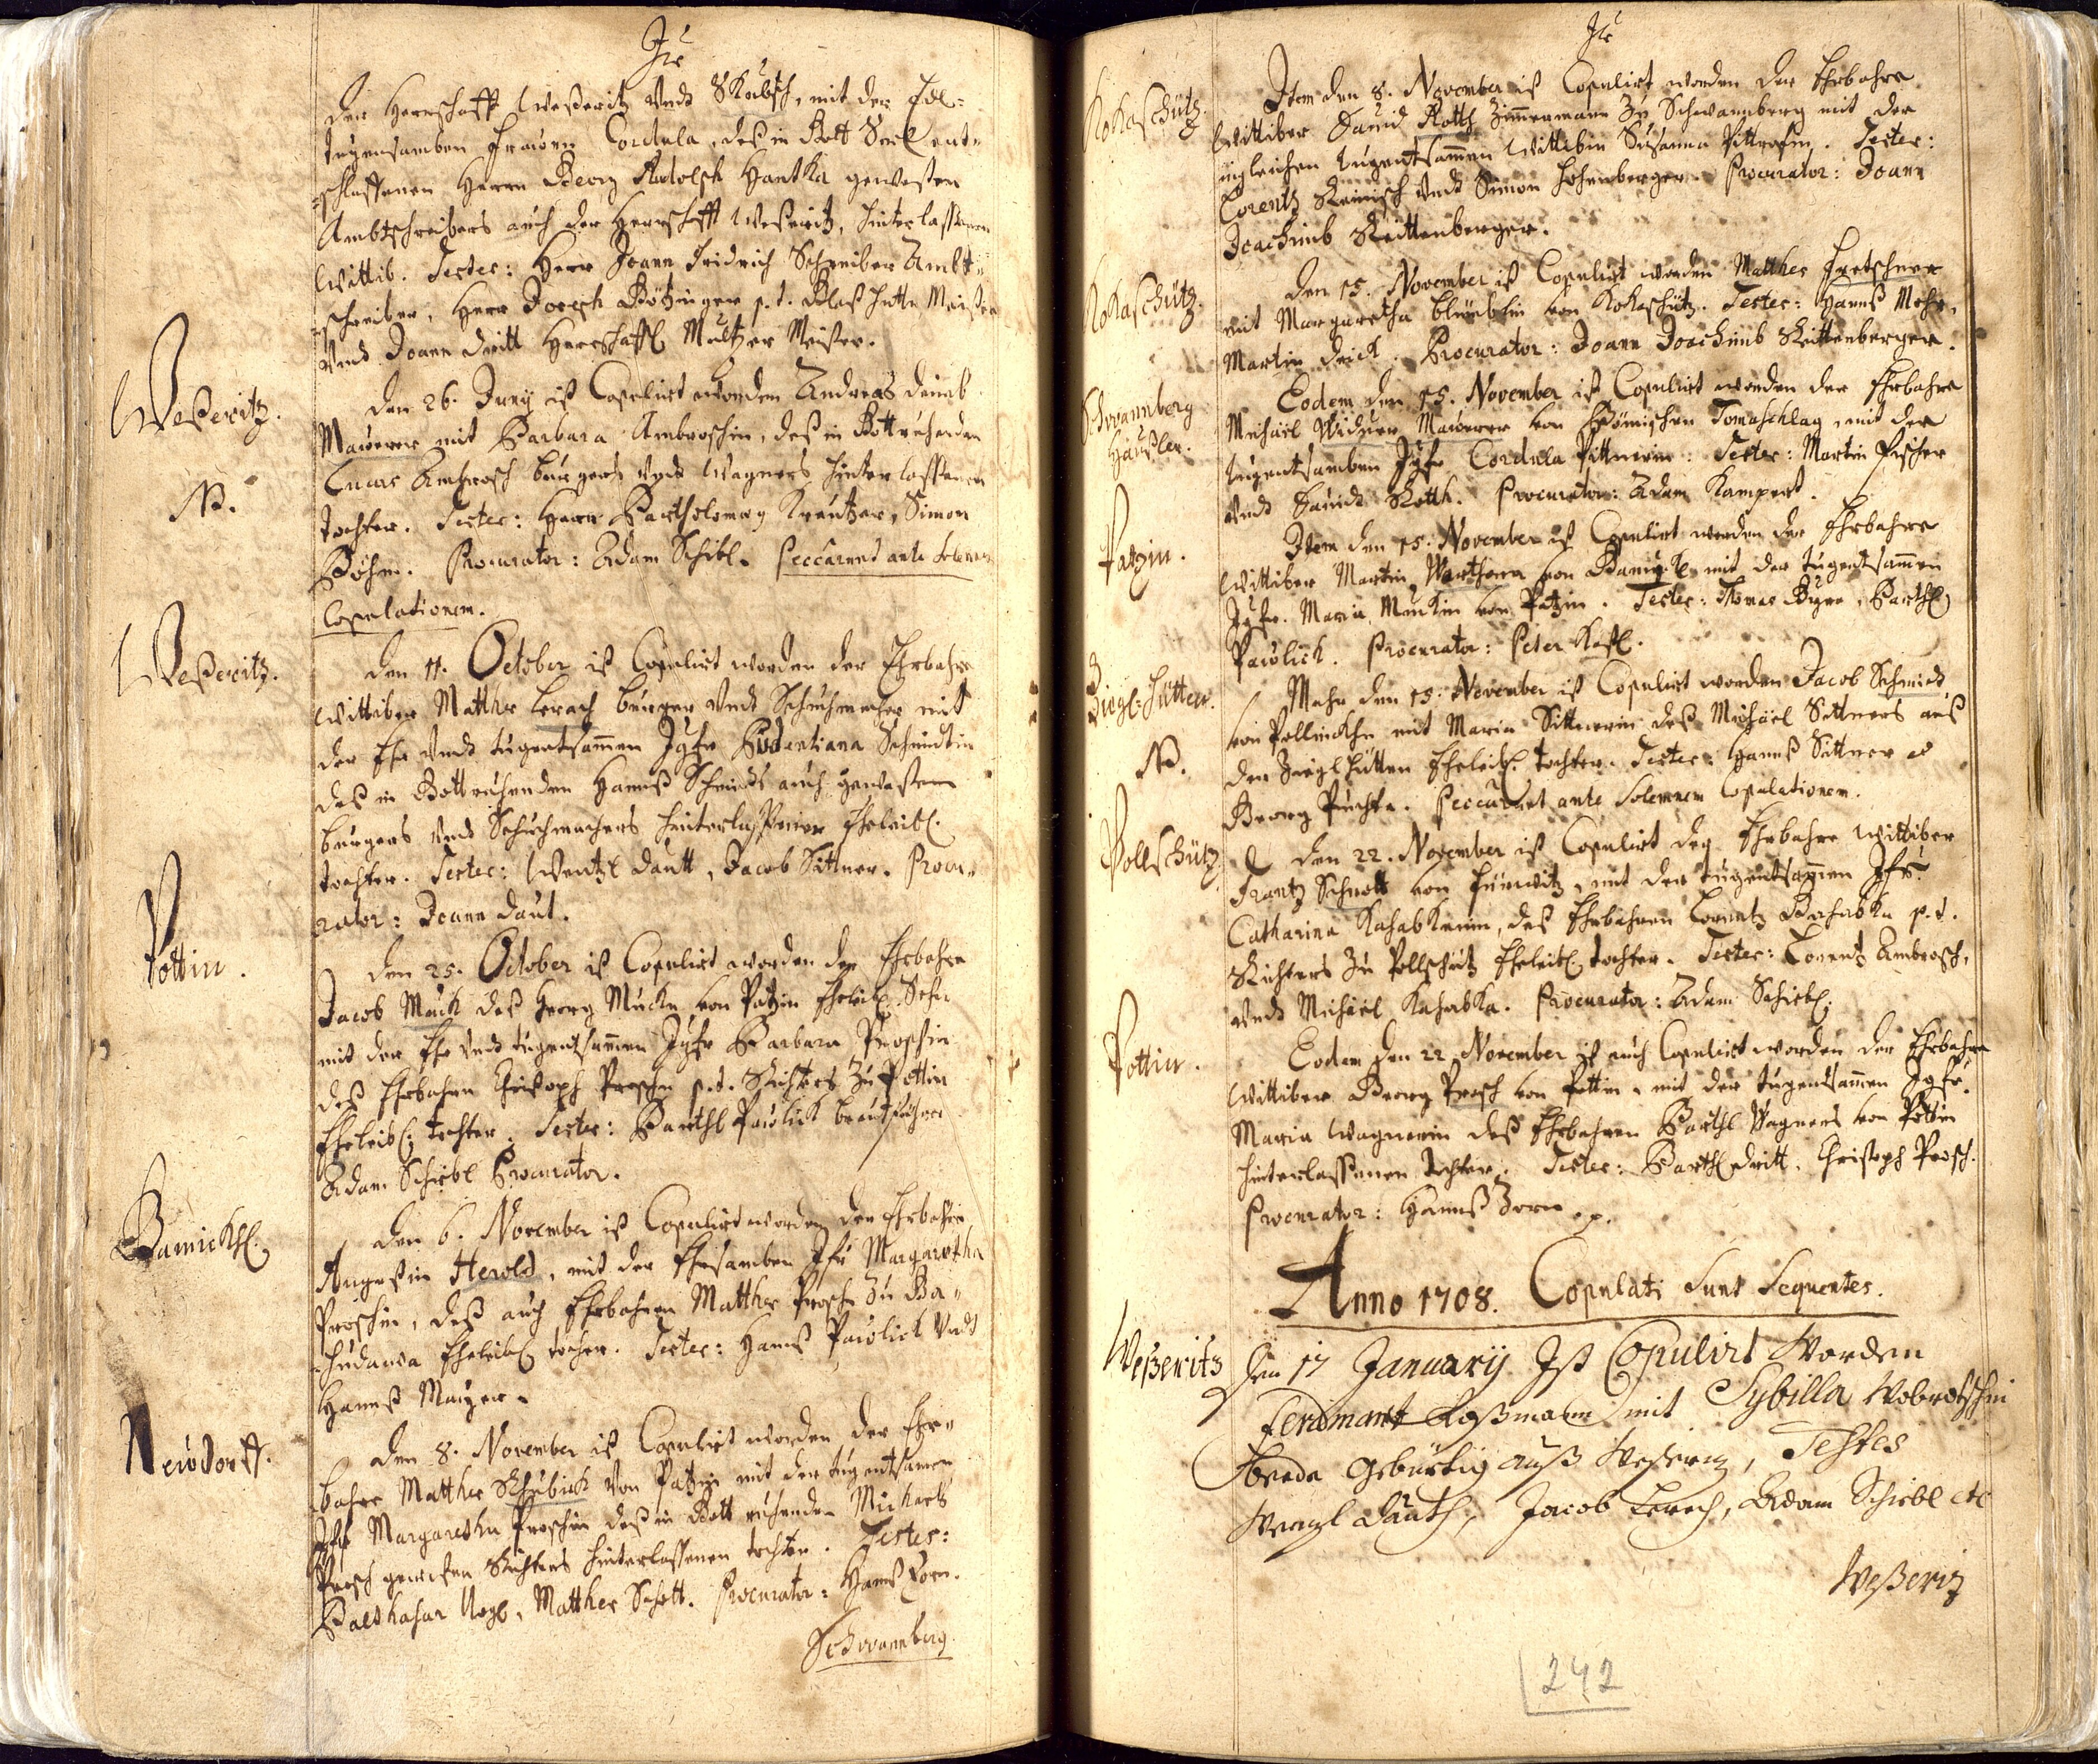 Der Herrschafft Weßeritz vndt Skubsch, mit der Edl-
tugensamben Frauen Cordula, deß in Gott Seel. ent-
schlaffenen Herrn Georg Rudolph Hantka geweßten
Ambtschreibers auch der Herrschafft Weßeritz, hinterlassenen
Wittib. Testes: Herr Joann Fridrich Schreiber Ambt-
schreiber, Herr Joseph p. t. Glaß Hütte Meister
vndt Joann Dritt Herrschaffl. Multzer Meister.
Weßeritz.
Den 26. Juny ist Copulirt worden Andreas
Maurer mit Barbara Ambroschin, deß in Gott ruhenden
NB.
Lucas Ambrosch burgers vndt Wagners hinterlassenen
tochter. Testes: Herr Bartholomay Kreutzer, Simon
Böhm. Procurator: Adam Schibl. Peccarunt ante solemnem
Copulationem.
Weßeritz.
Den 11. October ist Copulirt worden der Ehrbahre
Wittiber Matthes Lerach burger vndt Schuhmacher mit
der Ehr vndt tugentsammen Jgfr Pudentiana Schmidtin
deß in Gott ruhenden Hannß Schmidts auch geweßenen
burgers vndt Schuhmachers hinterlassenen Eheleibl.
tochter. Testes: Wentzl Dautt, Jacob Sittner. Procu-
rator: Joann Daut.
Pottin.
Den 25. October ist Copulirt worden der Ehrbahre
Jacob Muck deß Georg Mucks von Patzin Eheleibl. Sohn
mit der Ehr vndt tugentsammen Jgfr Barbara Proschin
deß Ehrbahren Christoph Prosch p. t. Richters Zu Pottin
Eheleibl. tochter. Testes: Barthl Pawlick
Adam Schiebl Procurator.
Gamickhl.
Den 6. November ist Copulirt worden der Ehrbahre
Augustin Herold, mit der Ehrsamben Jfr Margaretha
Proschin, deß auch Ehrbahren Matthes Prosch Zu
Eheleibl. tochter. Testes: Hannß Pawlick vndt
Hannß Mayer.
Newdorff.
Den 8. November ist Copulirt worden der Ehr-
bahre Matthes Skubick von Patzin mit der tugentsamen
Jgfr Margaretha Proschin deß in Gott ruhenden Michaels
Prosch geweßten Richters hinterlassenen tochter. Testes:
Balthasar Vogl, Matthes Schott. Procurator: Hannß Zorn.
Schwannberg.
Kokaschütz.
Item den 8. November ist Copulirt worden der Ehrbahre
Wittiber Dauid Roth Zimmermann Zu Schwannberg mit der
ingleichen tugentsammen Wittibin Susanna. Testes:
Lorentz Reinisch vndt Simon Hohenberger. Procurator: Joann
Joachimb Reittenberger.
Kokaschütz.
Den 15. November ist Copulirt worden Matthes Fretschner
mit Margaretha von Kokaschütz. Testes: Hannß Mohr,
Martin. Procurator: Joann Joachimb Reittenberger.
Schwannberg
Häußler.
Eodem den 15. November ist Copulirt worden der Ehrbahre
Michäel Widuer Maurer von Böhmischen Tomaschlag, mit der
tugentsamben Jgfr Cordula Pittnerin: Testes: Martin Fischer
vndt Dauidt Roth. Procurator: Adam Kampert.
Patzin.
Item den 15. November ist Copulirt worden der Ehrbahre
Wittiber Martin von mit der tugentsammen
Jgfr. Maria Muckin von Patzin. Testes: Thomas, Barthl
Pawlick. Procurator: Peter
Ziegl-Hütten.
Mehr den 15. November ist Copulirt worden Jacob Schmidt
von mit Maria Sittnerin deß Michäel Sittners auß
NB.
der Ziegl hütten Eheleibl. tochter. Testes: Hannß Sittner et
Georg Puchta. Peccarunt ante Solemnem Copulationem.
Pollschütz.
Den 22. November ist Copulirt der Ehrbahre Wittiber
Frantz Schott von, mit der tugentsammen Jfr.
Catharina Kahabkain, deß Ehrbahren Lorentz Kahabka p. t.
Richters Zu Pollschütz Eheleibl. tochter. Testes: Lorentz Ambrosch,
vndt Michäel Kahabka. Procurator: Adam Schiebl.
Pottin.
Eodem den 22. November ist auch Copulirt worden der Ehrbahre
Wittiber Georg Prosch von Pottin, mit der tugentsammen Jgfr.
Maria Wagnerin deß Ehrbahren Barthl Wagners von Pottin
hinterlassenen tochter. Testes: Barthl Dritt, Christoph Prosch.
Procurator: Hannß Zorn.
Anno 1708. Copulati Sunt Sequentes.
Weßeritz
Den 17 January Ist Copulirt Worden
Ferdinant Koßmann mit Sybilla
beede Gebürtig auß Weßeritz, Testes
Wenzl Dauth, Jacob Lerch, Adam Schiebl etc
Weßeriz
242